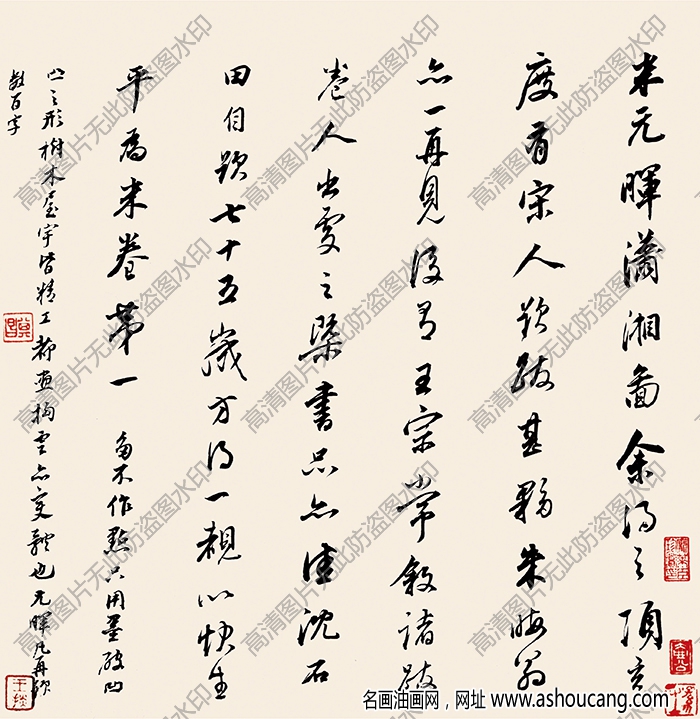 米元暉瀟湘圖余得之項玄
度有宋人題跋甚夥朱晦翁
亦一再見後有王宗常叙諸跋
卷人出處之槩書品亦佳沈石
田自題七十五歲方得一覩以快生
平為米卷第一 畫不作點只用墨破凹
凸之形樹木屋宇皆精工都畫抅雲亦變體也元暉凡再題
數百字
高清图片无此防盗图水印
名画油画网，网址 www.ashoucang.com